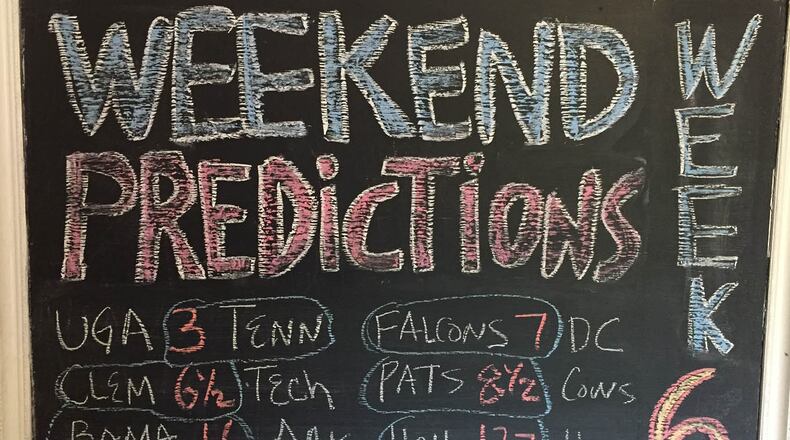 WEEKEND
PREDICTIONS
WEEK
6
UGA 3 TENN
FALCONS 7 DC
CLEM 6½ TECH
PATS 8½ COWS
BAMA 16 ARK
HOU